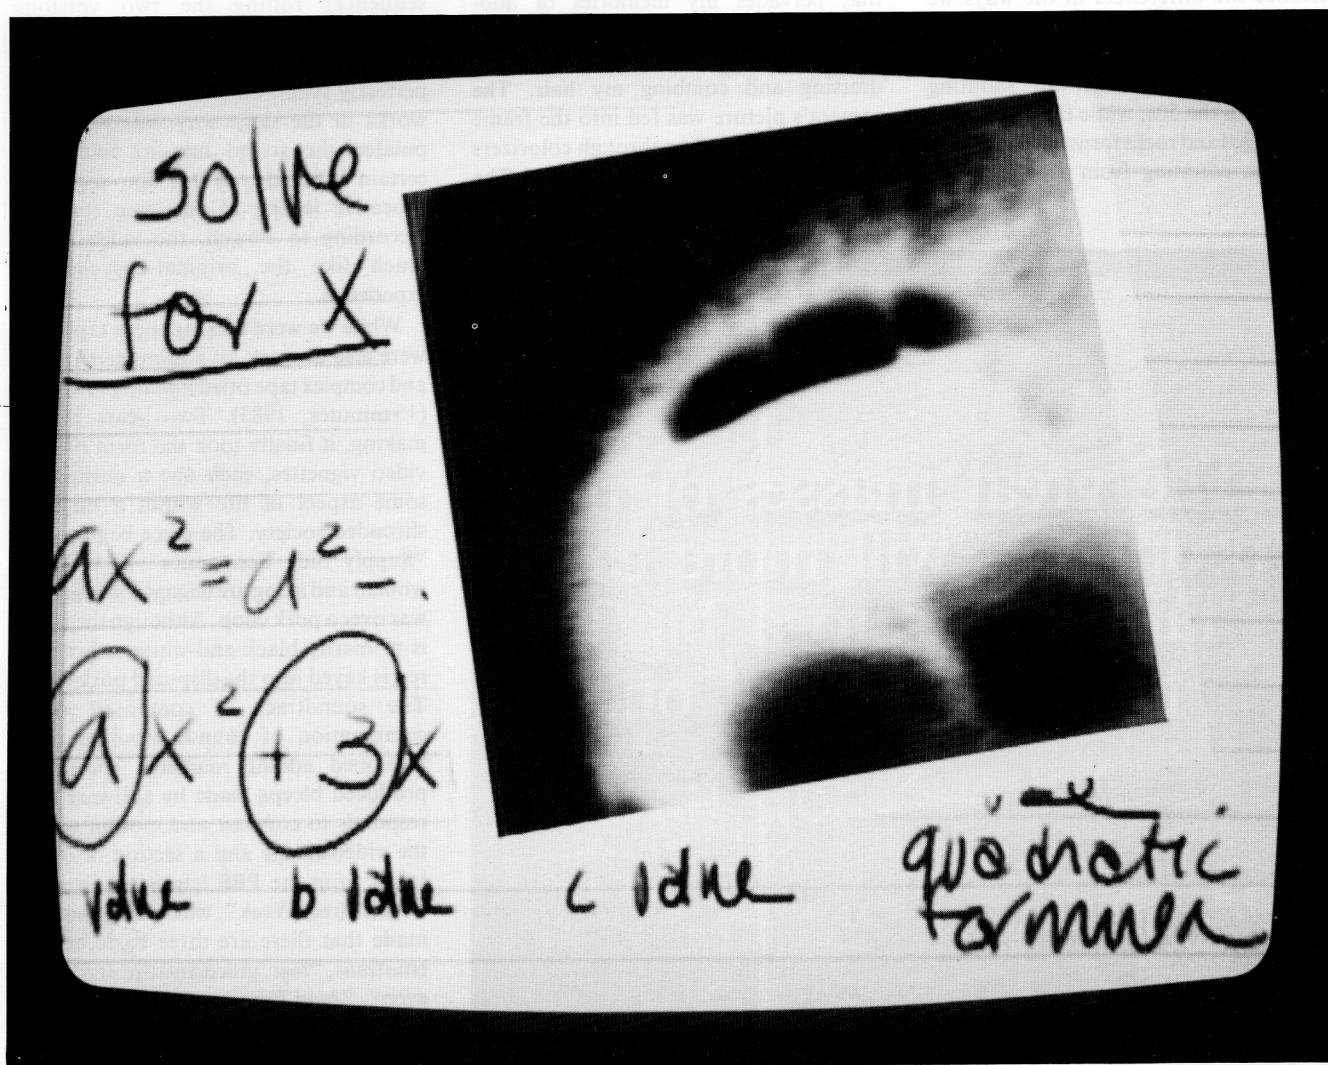 solve
for x
ax² = a² –
a x² + 3 x
value b value c value
quadratic
formula